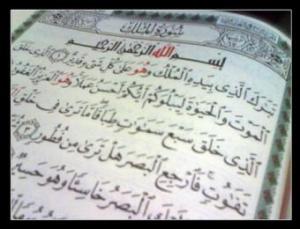 سُورَةُ الْمُلْكِ
بِسْمِ اللَّهِ الرَّحْمَٰنِ الرَّحِيمِ
تَبَارَكَ الَّذِي بِيَدِهِ الْمُلْكُ وَهُوَ عَلَىٰ كُلِّ شَيْءٍ قَدِيرٌ ﴿١﴾ الَّذِي خَلَقَ
الْمَوْتَ وَالْحَيَاةَ لِيَبْلُوَكُمْ أَيُّكُمْ أَحْسَنُ عَمَلًا وَهُوَ الْعَزِيزُ الْغَفُورُ
الَّذِي خَلَقَ سَبْعَ سَمَاوَاتٍ طِبَاقًا مَا تَرَىٰ فِي خَلْقِ
تَفَاوُتٍ فَارْجِعِ الْبَصَرَ هَلْ تَرَىٰ مِنْ فُطُورٍ ﴿٣﴾
الْبَصَرُ خَاسِئًا وَهُوَ حَسِيرٌ